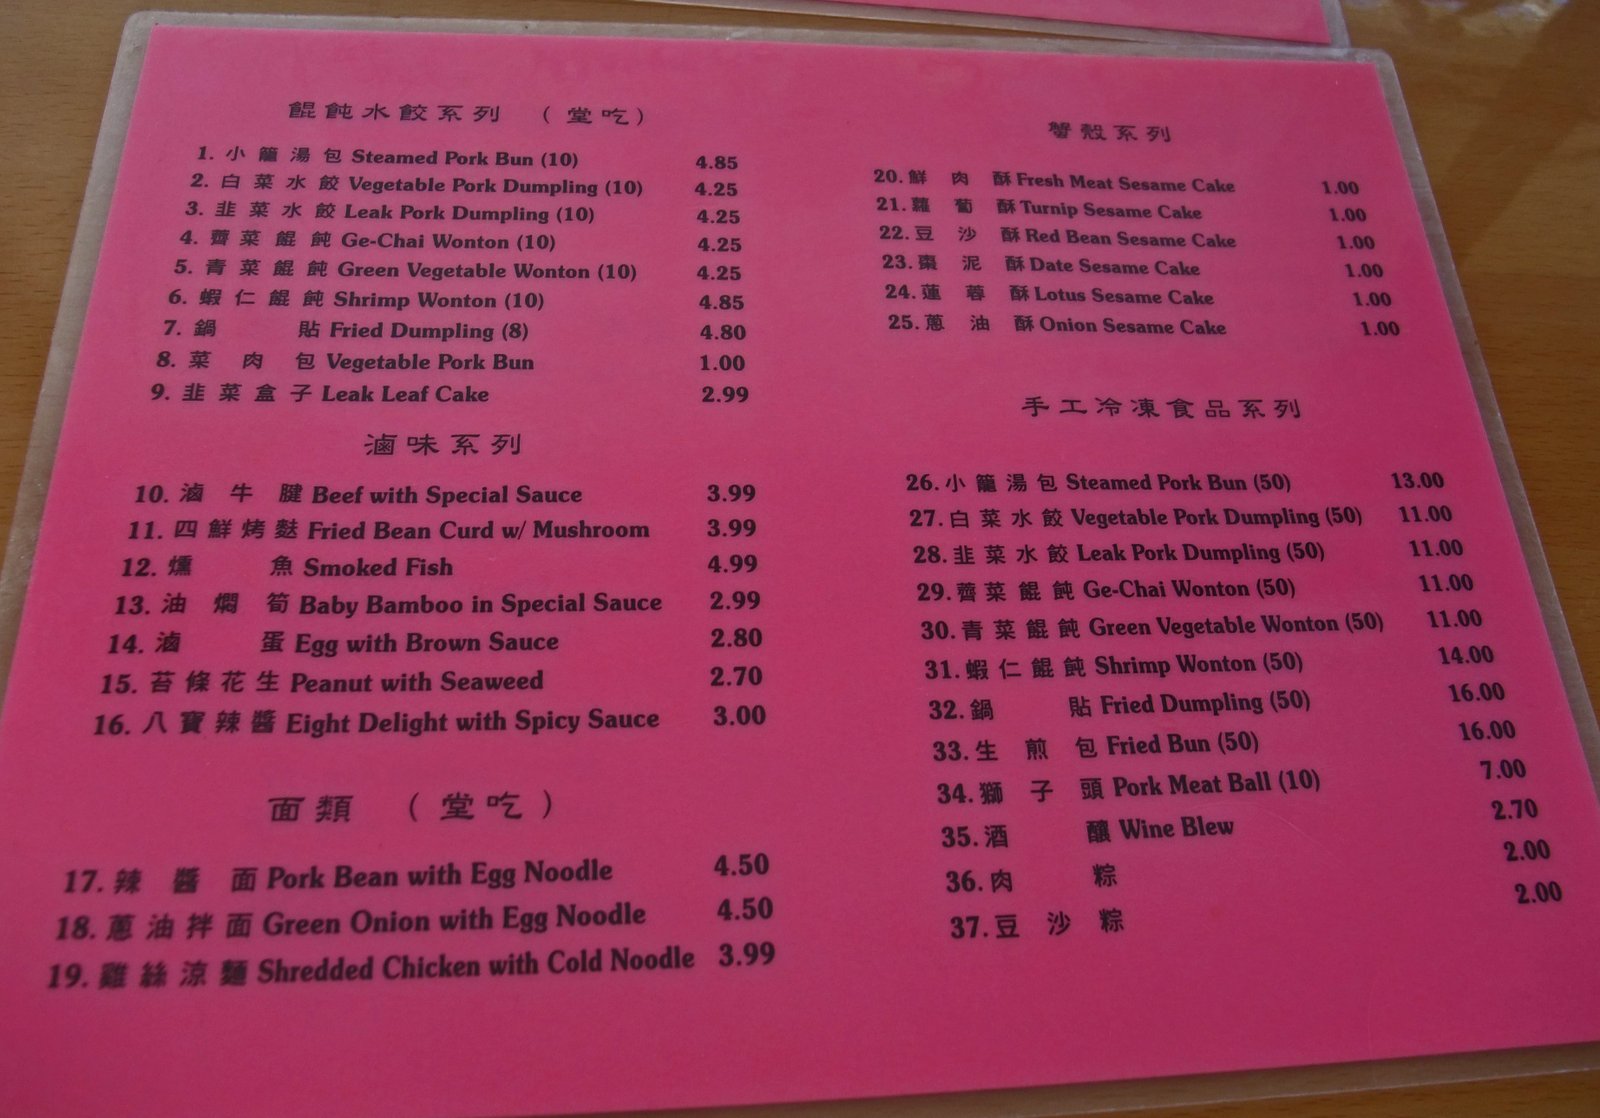 餛飩水餃系列 （堂吃）
1. 小籠湯包 Steamed Pork Bun (10) 4.85
2. 白菜水餃 Vegetable Pork Dumpling (10) 4.25
3. 韭菜水餃 Leak Pork Dumpling (10) 4.25
4. 薺菜餛飩 Ge-Chai Wonton (10) 4.25
5. 青菜餛飩 Green Vegetable Wonton (10) 4.25
6. 蝦仁餛飩 Shrimp Wonton (10) 4.85
7. 鍋貼 Fried Dumpling (8) 4.80
8. 菜肉包 Vegetable Pork Bun 1.00
9. 韭菜盒子 Leak Leaf Cake 2.99
滷味系列
10. 滷牛腱 Beef with Special Sauce 3.99
11. 四鮮烤麩 Fried Bean Curd w/ Mushroom 3.99
12. 燻魚 Smoked Fish 4.99
13. 油燜筍 Baby Bamboo in Special Sauce 2.99
14. 滷蛋 Egg with Brown Sauce 2.80
15. 苔條花生 Peanut with Seaweed 2.70
16. 八寶辣醬 Eight Delight with Spicy Sauce 3.00
面類 （堂吃）
17. 辣醬面 Pork Bean with Egg Noodle 4.50
18. 蔥油拌面 Green Onion with Egg Noodle 4.50
19. 雞絲涼麵 Shredded Chicken with Cold Noodle 3.99
蟹殼系列
20. 鮮肉酥 Fresh Meat Sesame Cake 1.00
21. 蘿蔔酥 Turnip Sesame Cake 1.00
22. 豆沙酥 Red Bean Sesame Cake 1.00
23. 棗泥酥 Date Sesame Cake 1.00
24. 蓮蓉酥 Lotus Sesame Cake 1.00
25. 蔥油酥 Onion Sesame Cake 1.00
手工冷凍食品系列
26. 小籠湯包 Steamed Pork Bun (50) 13.00
27. 白菜水餃 Vegetable Pork Dumpling (50) 11.00
28. 韭菜水餃 Leak Pork Dumpling (50) 11.00
29. 薺菜餛飩 Ge-Chai Wonton (50) 11.00
30. 青菜餛飩 Green Vegetable Wonton (50) 11.00
31. 蝦仁餛飩 Shrimp Wonton (50) 14.00
32. 鍋貼 Fried Dumpling (50) 16.00
33. 生煎包 Fried Bun (50) 16.00
34. 獅子頭 Pork Meat Ball (10) 7.00
35. 酒釀 Wine Blew 2.70
36. 肉粽 2.00
37. 豆沙粽 2.00